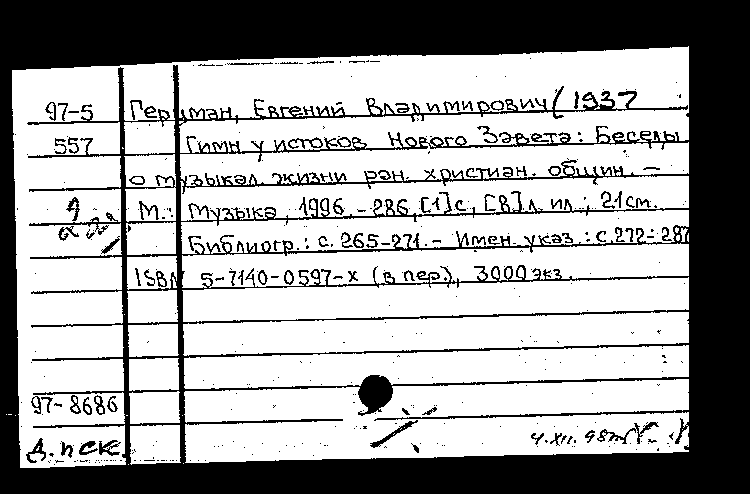 97-5 Герцман, Евгений Владимирович (1937
557 Гимн у истоков Нового Завета: Беседы
о музыкал. жизни ран. христиан. общин. —
М.: Музыка, 1996. - 286, [1]с, [8]л. ил.; 21см.
Библиогр.: с. 265-271. - Имен. указ.: с.272-287
ISBN 5-7140-0597-х (в пер.), 3000 экз.
97-8686
Д. п ск. 4.XII.98